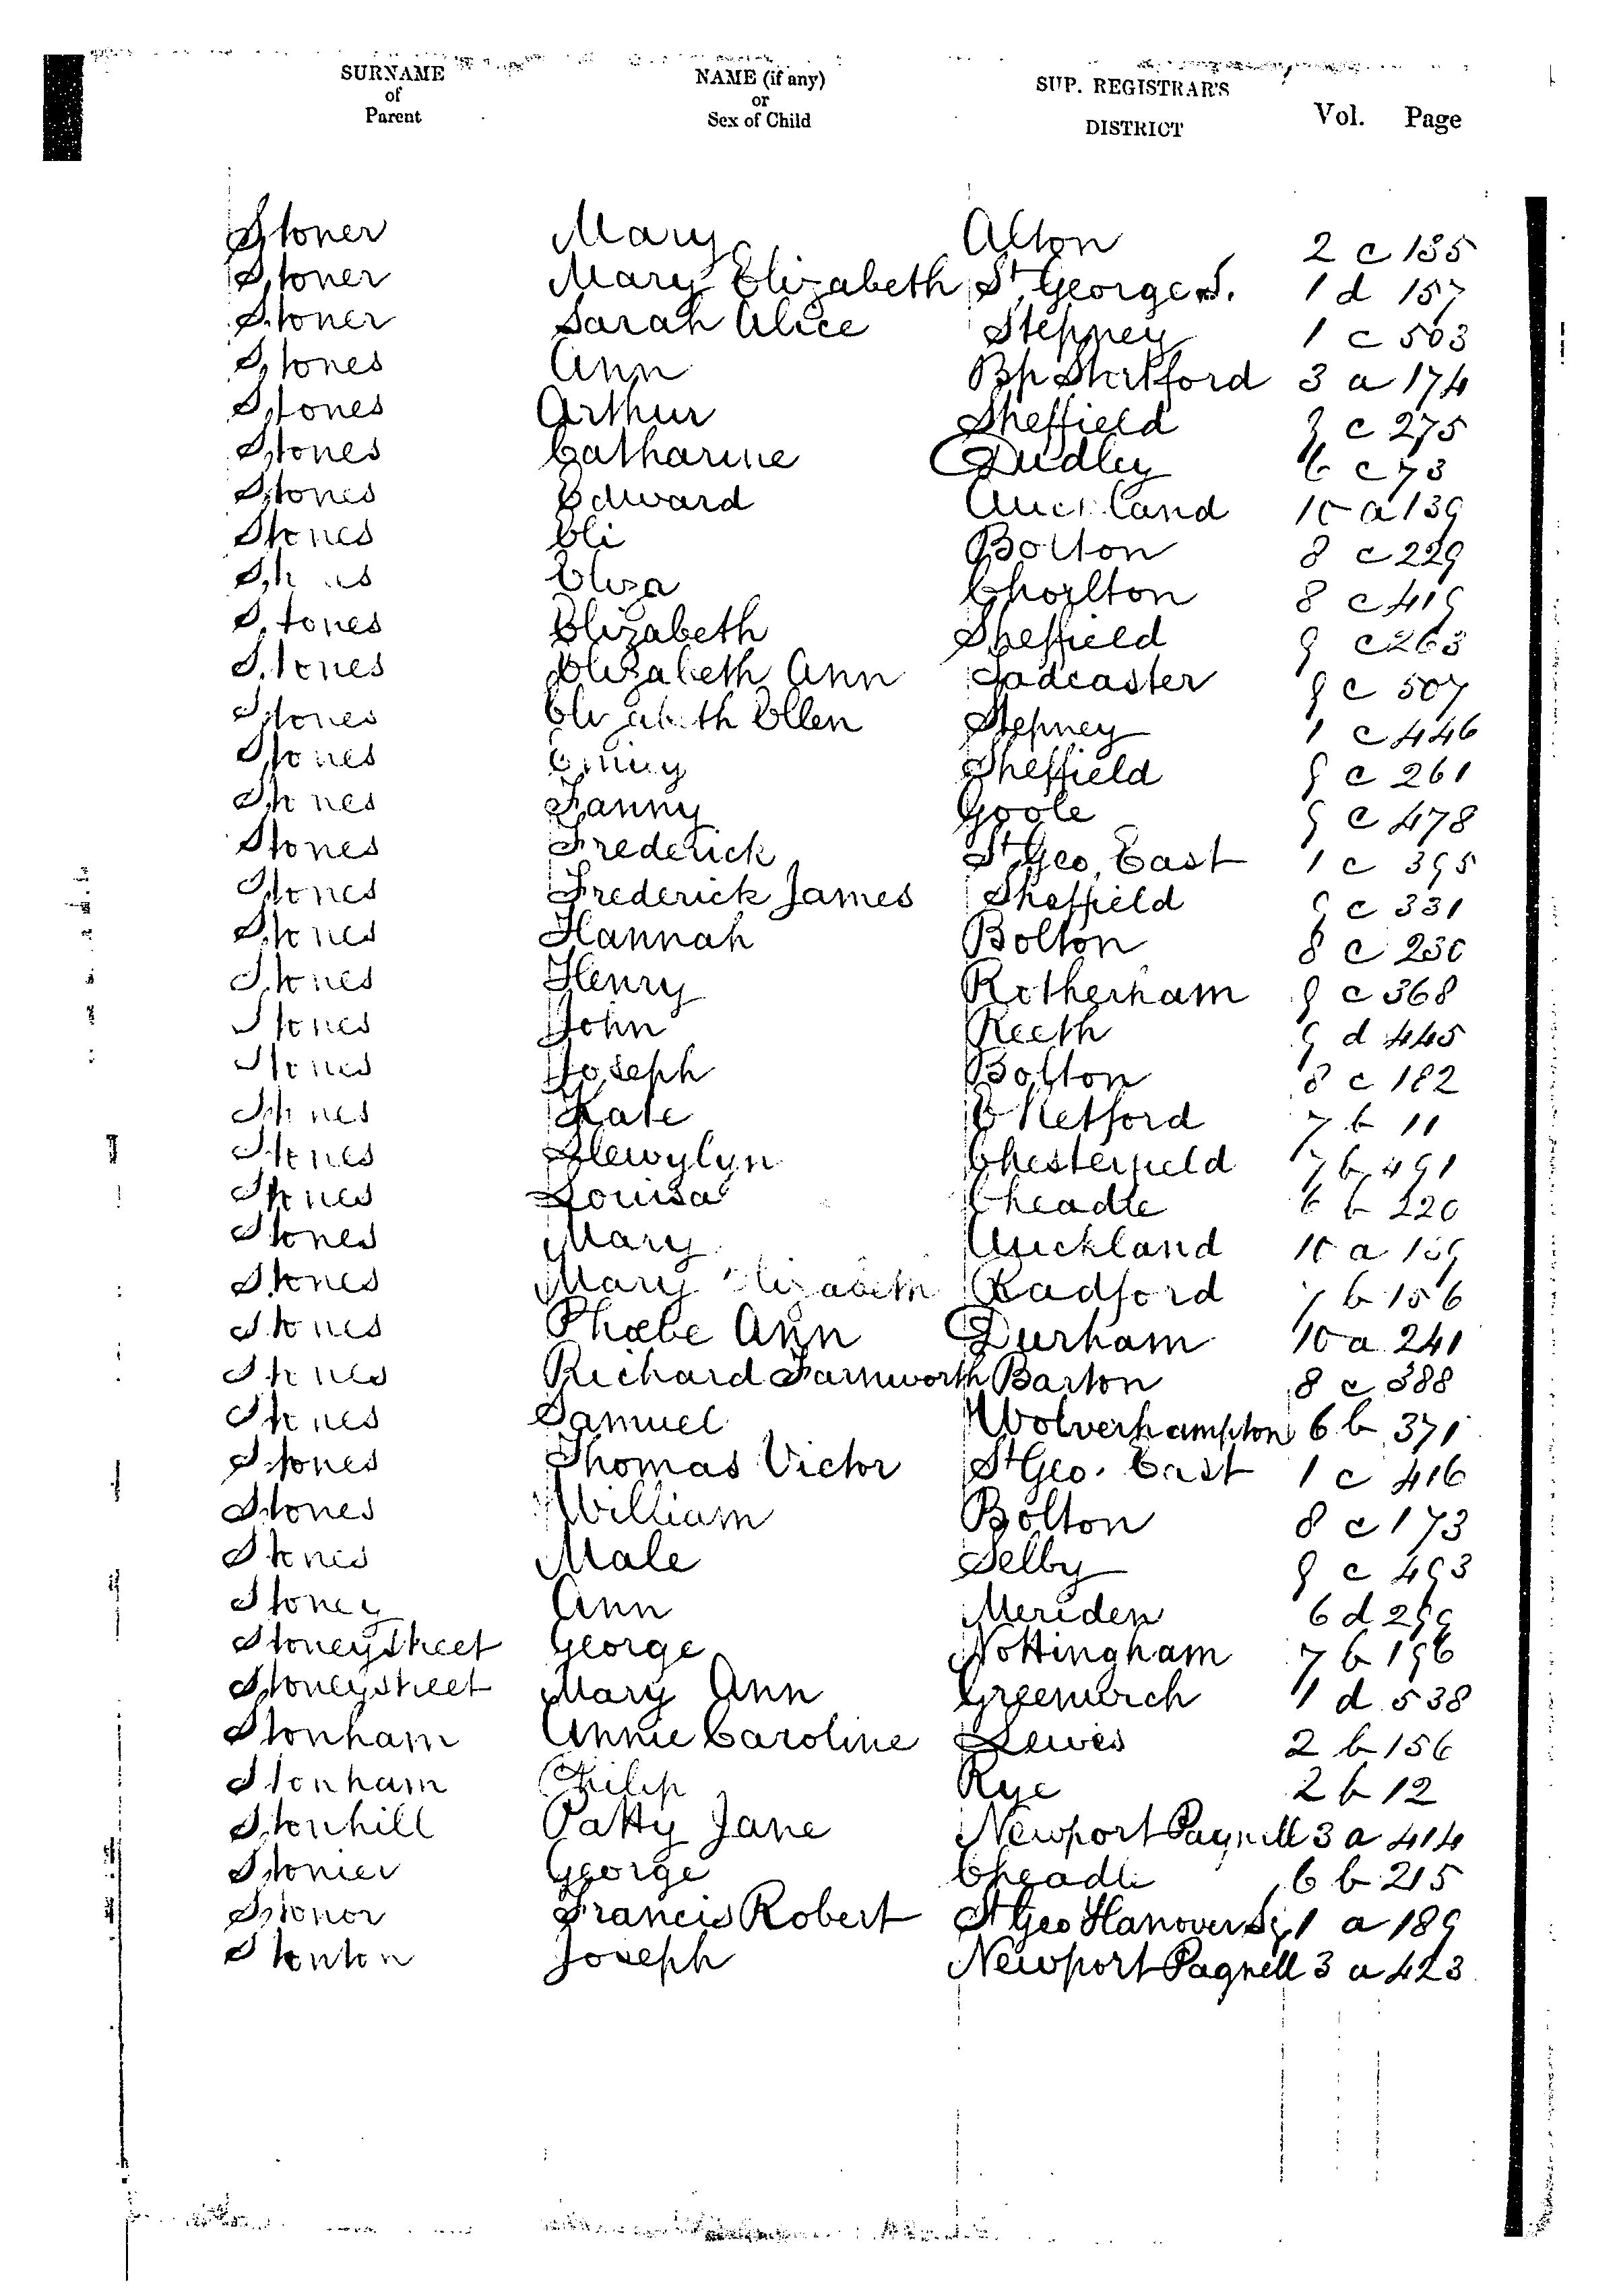 SURNAME of Parent NAME (if any) or Sex of Child SUP. REGISTRAR'S DISTRICT Vol. Page
Stoner Mary Alton 2 c 135
Stoner Mary Elizabeth St George S. 1 d 157
Stoner Sarah Alice Stepney 1 c 503
Stones Ann Bp Stortford 3 a 174
Stones Arthur Sheffield 9 c 275
Stones Catharine Dudley 6 c 73
Stones Edward Auckland 10 a 139
Stones Eli Bolton 8 c 229
Stones Eliza Chorlton 8 c 419
Stones Elizabeth Sheffield 9 c 263
Stones Elizabeth Ann Tadcaster 9 c 507
Stones Elizabeth Ellen Stepney 1 c 446
Stones Emily Sheffield 9 c 261
Stones Fanny Goole 9 c 478
Stones Frederick St Geo. East 1 c 395
Stones Frederick James Sheffield 9 c 331
Stones Hannah Bolton 8 c 230
Stones Henry Rotherham 9 c 368
Stones John Reeth 9 d 445
Stones Joseph Bolton 8 c 182
Stones Kate E Retford 7 b 11
Stones Llewylyn Chesterfield 7 b 491
Stones Louisa Cheadle 6 b 220
Stones Mary Auckland 10 a 139
Stones Mary Elizabeth Radford 7 b 156
Stones Phœbe Ann Durham 10 a 241
Stones Richard Farnworth Barton 8 c 388
Stones Samuel Wolverhampton 6 b 371
Stones Thomas Victor St Geo. East 1 c 416
Stones William Bolton 8 c 173
Stones Male Selby 9 c 493
Stoney Ann Meriden 6 d 299
Stoneystreet George Nottingham 7 b 196
Stoneystreet Mary Ann Greenwich 1 d 538
Stonham Annie Caroline Lewes 2 b 156
Stonham Philip Rye 2 b 12
Stonhill Patty Jane Newport Pagnell 3 a 414
Stonier George Cheadle 6 b 215
Stonor Francis Robert St Geo Hanover Sq 1 a 189
Stonton Joseph Newport Pagnell 3 a 423